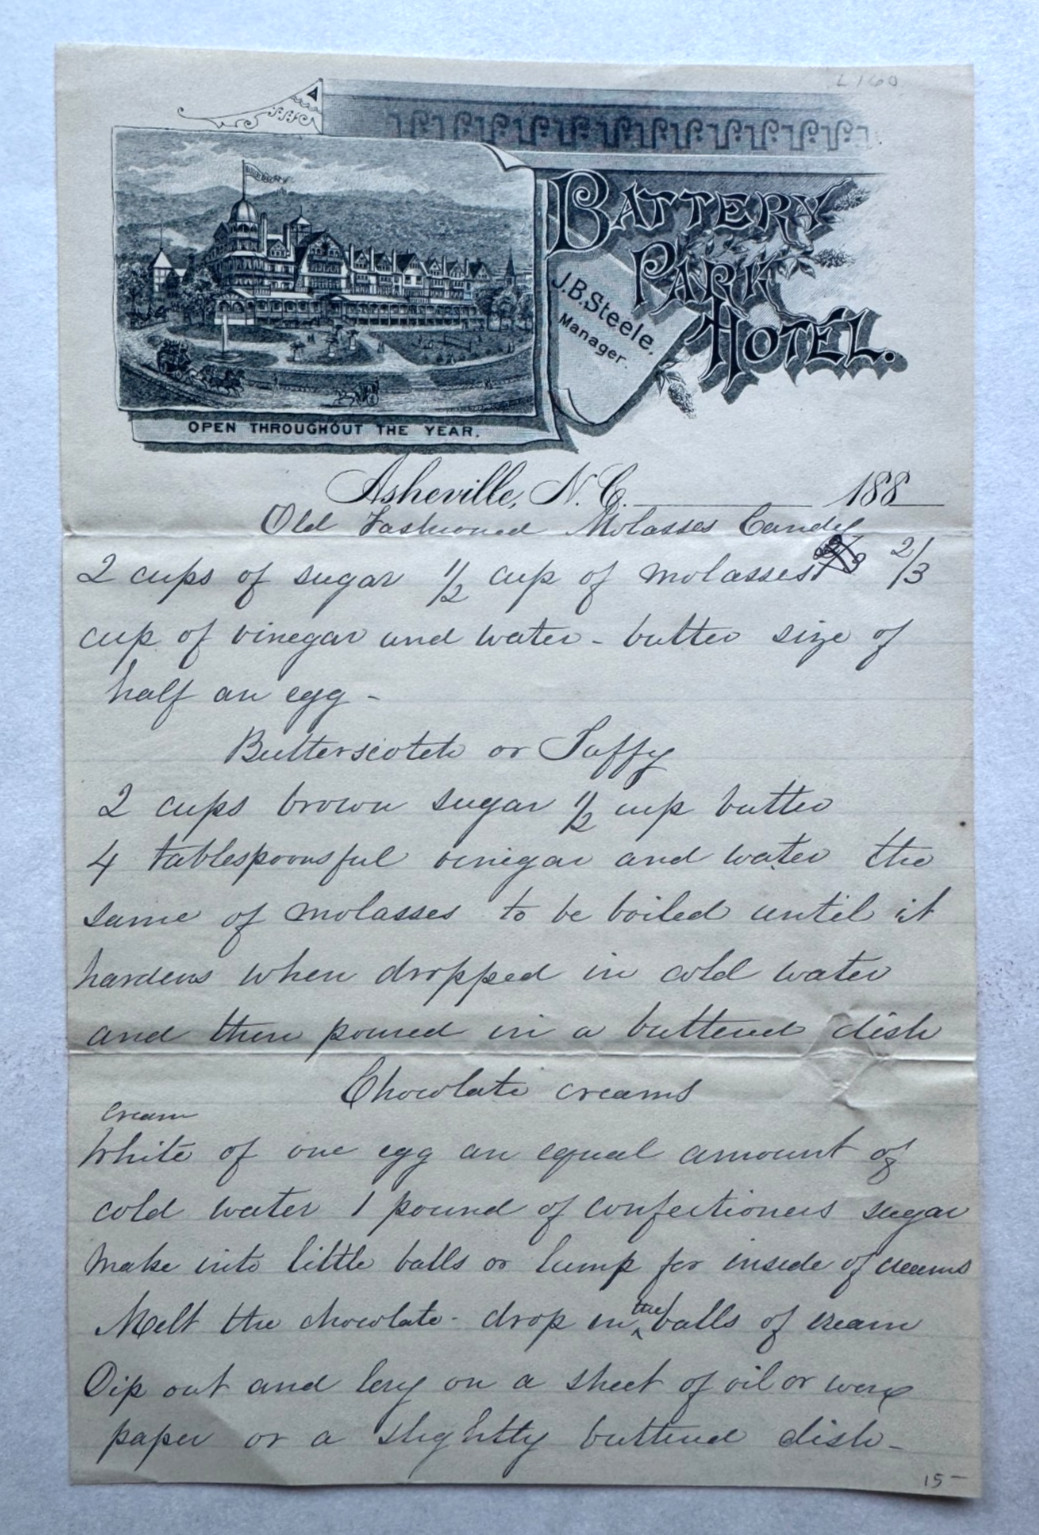 L160
BATTERY
PARK
HOTEL.
J.B. Steele,
Manager.
OPEN THROUGHOUT THE YEAR.
Asheville, N.C. 188
Old Fashioned Molasses Candy
2 cups of sugar 1/2 cup of molasses 2/3
cup of vinegar and water - butter size of
half an egg -
Butterscotch or Taffy
2 cups brown sugar 1/2 cup butter
4 tablespoonsful vinegar and water the
same of molasses to be boiled until it
hardens when dropped in cold water
and then poured in a buttered dish
Chocolate creams
cream
White of one egg an equal amount of
cold water 1 pound of confectioners sugar
Make into little balls or lump for inside of creams
Melt the chocolate - drop in the balls of cream
Dip out and lay on a sheet of oil or wax
paper or a slightly buttered dish -
15 -